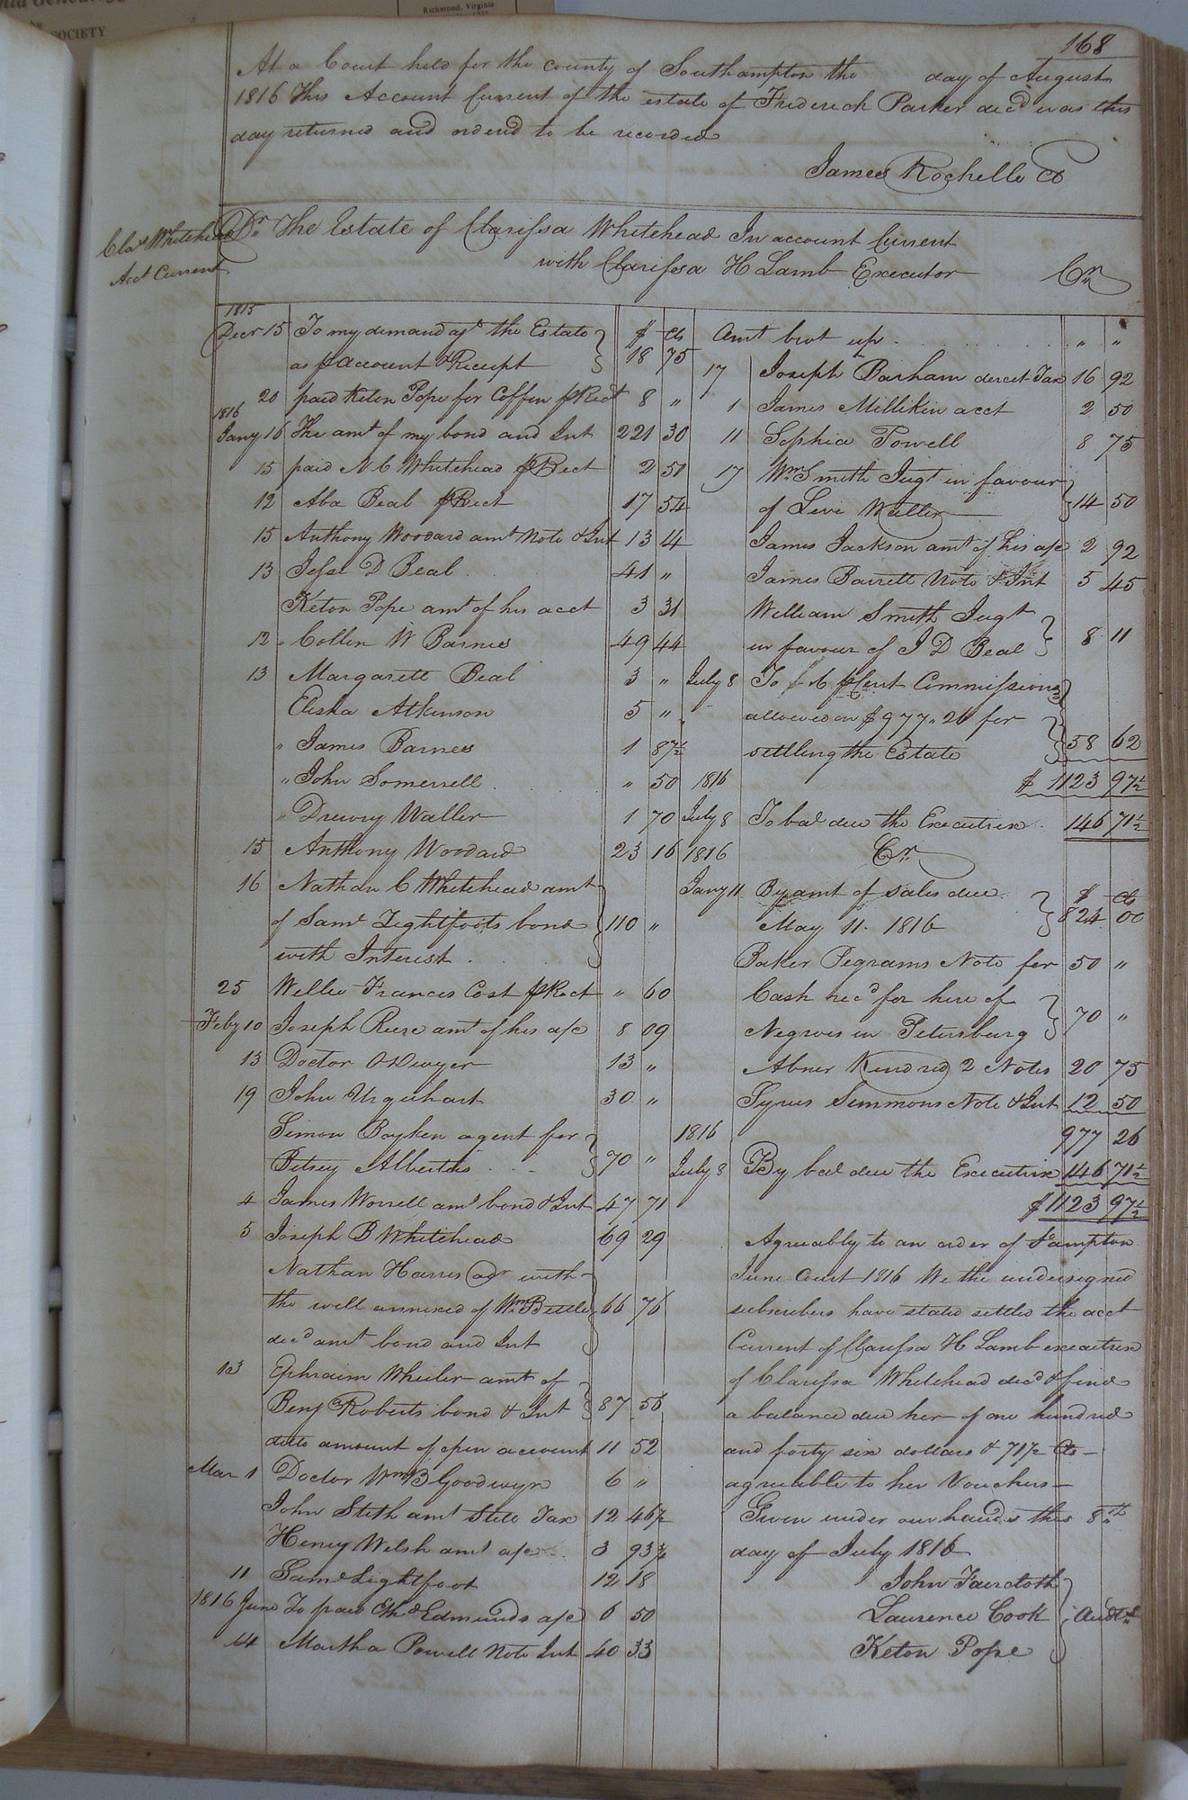 168
At a Court held for the county of Southampton the day of August
1816 This Account Current of the estate of Frederick Parker decd was this
day returned and ordered to be recorded
James Rochelle
Clas Whitehead
Acct Current
Dr The Estate of Clarissa Whitehead In account Current
with Clarissa H Lamb Executor Cr
1815
Decr 15 To my demand agt the Estate $ cts
as p Account & Receipt 18 75
20 paid Keton Pope for Coffin p Rect 8 "
1816
Jany 16 The amt of my bond and Int 221 30
15 paid N C Whitehead p Rect 2 50
12 Aba Beal p Rect 17 54
15 Anthony Woodard amt Note & Int 13 44
13 Jesse D Beal 41 "
Keton Pope amt of his acct 3 31
12 Collin W Barnes 49 44
13 Margarett Beal 3 "
Elisha Atkinson 5 "
" James Barnes 1 87½
" John Somerrell " 50
" Drewry Waller 1 70
15 Anthony Woodard 23 16
16 Nathan C Whitehead amt
of Saml Lightfoots bond 110 "
with Interest
25 Willie Francis Cost p Rect " 60
Feby 10 Joseph Reese amt of his a/c 8 09
13 Doctor ODwyer 13 "
19 John Urquhart 30 "
Simon Boyken agent for
Betsey Albertis 70 "
4 James Worrell amt bond & Int 47 71
5 Joseph B Whitehead 69 29
Nathan Harris adr with
the will annexed of Wm Bittle 66 76
decd amt bond and Int
13 Ephraim Wheeler amt of
Benj Roberts bond & Int 87 56
ditto amount of open account 11 52
Mar 1 Doctor Wm B Goodwyn 6 "
John Stith amt Tax 12 46½
Henry Welsh amt a/c 3 93½
11 Saml Lightfoot 12 18
1816 June To paid Edmunds a/c 6 50
14 Martha Powell Note Int 40 33
Amt brot up " "
17 Joseph Barham direct Tax 16 92
1 James Millikin acct 2 50
11 Sophia Powell 8 75
17 Wm Smith Jugt in favour
of Levi Waller 14 50
James Jackson amt of his a/c 2 92
James Barrett Note & Int 5 45
William Smith Jugt
in favour of J D Beal 8 11
July 8 To 6 p Cent Commissions
allowed on $977.26 for
settling the Estate 58 62
1816 $ 1123 97½
July 8 To bal due the Executrix 146 71½
1816 Cr
Jany 11 By amt of sales due $ cts
May 11. 1816 824 00
Baker Pegrams Note for 50 "
Cash recd for hire of
Negroes in Petersburg 70 "
Abner Kindred 2 Notes 20 75
Syrus Simmons Note & Int 12 50
1816 977 26
July 8 By bal due the Executrix 146 71½
$ 1123 97½
Agreeably to an order of Sampton
June Court 1816 We the undersigned
subscribers have stated settled the acct
Current of Clarissa H Lamb executrix
of Clarissa Whitehead decd & find
a balance due her of one hundred
and forty six dollars & 71½ Cts -
agreeable to her Vouchers -
Given under our hands this 8th
day of July 1816
John Faircloth
Laurence Cook Audtrs
Keton Pope